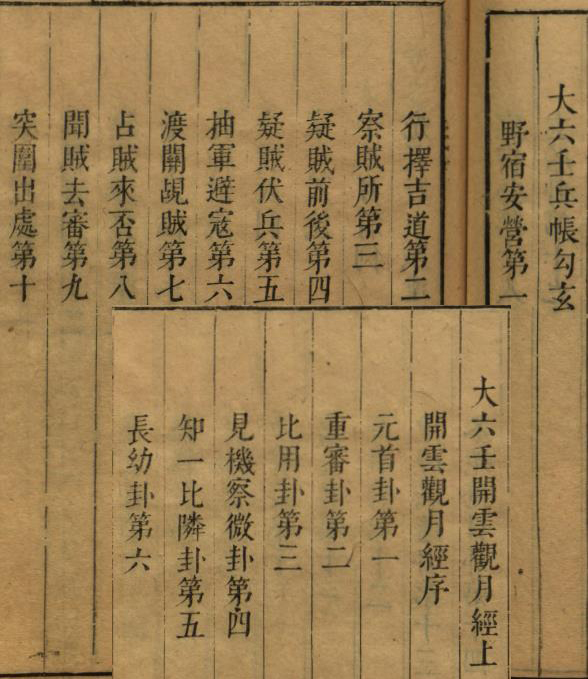 大六壬兵帳勾玄
野宿安營第一
行擇吉道第二
察賊所第三
疑賊前後第四
疑賊伏兵第五
抽軍避寇第六
渡關覘賊第七
占賊來否第八
聞賊去審第九
突圍出處第十
大六壬開雲觀月經上
開雲觀月經序
元首卦第一
重審卦第二
比用卦第三
見機察微卦第四
知一比隣卦第五
長幼卦第六